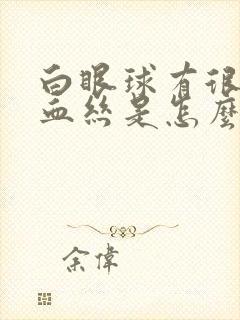 白眼球有很
血絲是怎麼
余偉